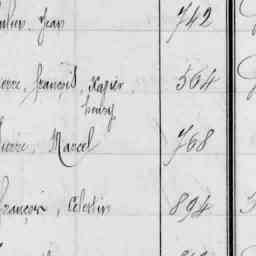 Julien Jean 742
Pierre, François, Xavier, 564
henry
Pierre, Marcel 768
François, Celestin 894